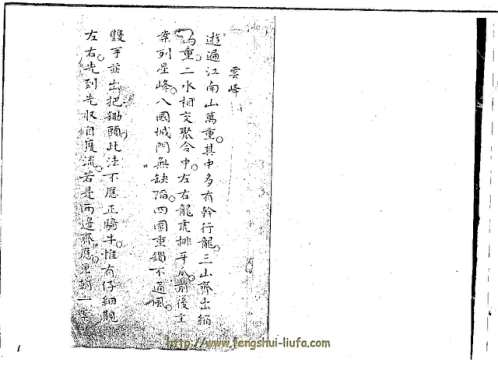 雲峰
遊過江南山萬重。其中多有幹行龍。三山齊出
重。二水相交聚合中。左右龍虎排牙爪。前後主
案列星峰。八國城門無缺陷。四圍重鐲不通風
雙手並出把鋤頭此法不應正騎牛。惟有仔細觀
左右先到先收自度流。若是兩邊齊應
1
http://www.fengshui-liufa.com